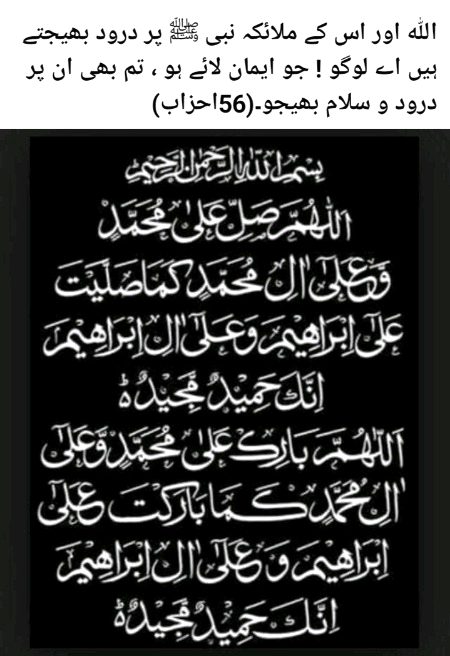 اللہ اور اس کے ملائکہ نبی ﷺ پر درود بھیجتے
ہیں اے لوگو ! جو ایمان لائے ہو ، تم بھی ان پر
درود و سلام بھیجو۔(56احزاب)
بِسْمِ اللّٰهِ الرَّحْمٰنِ الرَّحِيْمِ
اَللّٰهُمَّ صَلِّ عَلٰى مُحَمَّدٍ
وَّعَلٰٓى اٰلِ مُحَمَّدٍ كَمَا صَلَّيْتَ
عَلٰٓى اِبْرَاهِيْمَ وَعَلٰٓى اٰلِ اِبْرَاهِيْمَ
اِنَّكَ حَمِيْدٌ مَّجِيْدٌ ط
اَللّٰهُمَّ بَارِكْ عَلٰى مُحَمَّدٍ وَّعَلٰٓى
اٰلِ مُحَمَّدٍ كَمَا بَارَكْتَ عَلٰٓى
اِبْرَاهِيْمَ وَعَلٰٓى اٰلِ اِبْرَاهِيْمَ
اِنَّكَ حَمِيْدٌ مَّجِيْدٌ ط